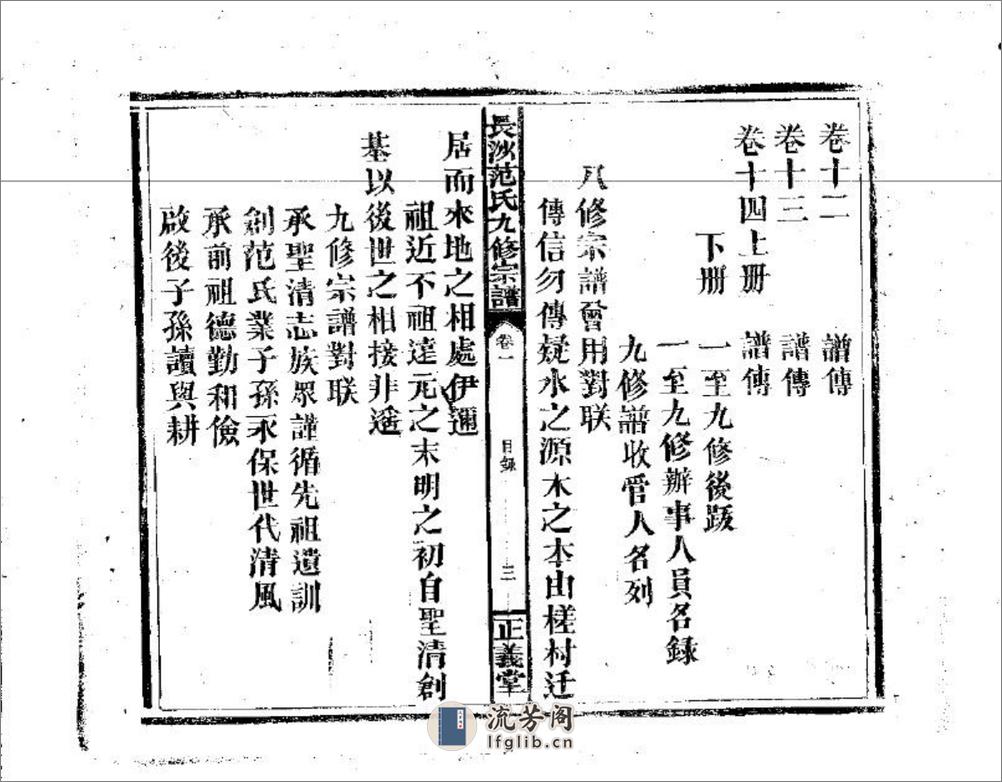 卷十二 譜傳
卷十三 譜傳
卷十四上册 譜傳
下册 一至九修後跋
一至九修辦事人員名錄
九修譜收管人名列
八修宗譜會用對联
傳信勿傳疑水之源木之本由槎村迁
長沙范氏九修宗譜 卷一 目錄 三 正義堂
居而來地之相處伊邇
祖近不祖達元之末明之初自聖清創
基以後世之相接非遥
九修宗譜對联
承聖清志族眾謹循先祖遺訓
創范氏業子孫永保世代清風
承前祖德勤和儉
啟後子孫讀與耕
流芳阁
lfglib.cn